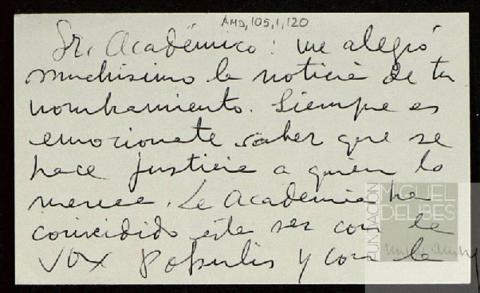 AMD,105,1,120
Sr. Académico: me alegró
muchísimo la noticia de tu
nombramiento. Siempre es
emocionate saber que se
hace justicia a quien lo
merece. La Academia ha
coincidido esta vez con la
VOX Populis y con la
FUNDACIÓN
MIGUEL
DELIBES